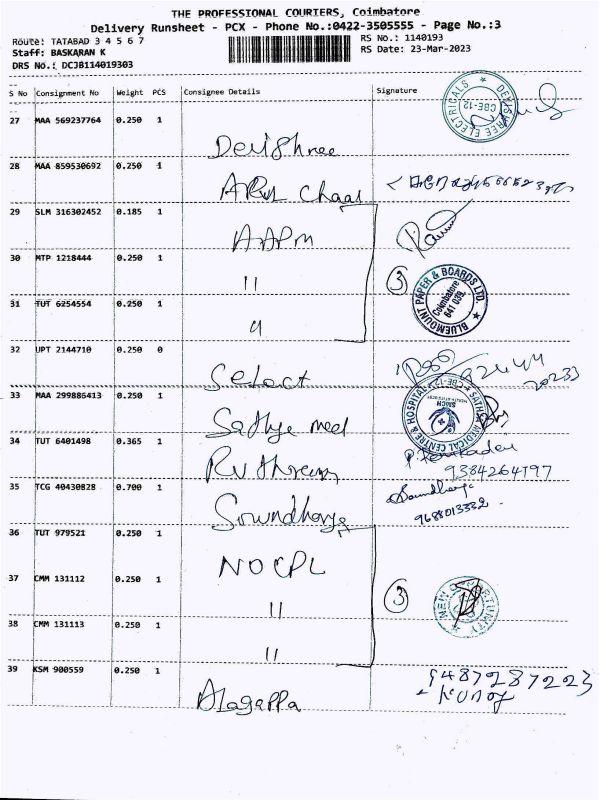 THE PROFESSIONAL COURIERS, Coimbatore
Delivery Runsheet - PCX - Phone No.:0422-3505555 - Page No.:3
Route: TATABAD 3 4 5 6 7 RS No.: 1140193
Staff: BASKARAN K RS Date: 23-Mar-2023
DRS No.: DCJB114019303
S No Consignment No Weight PCS Consignee Details Signature
27 MAA 569237764 0.250 1 Devishree
DEVISHREE ELECTRICALS CBE-12
28 MAA 859530692 0.250 1
29 SLM 316302452 0.185 1 AAPM
30 MTP 1218444 0.250 1 11 3
BLUEMOUNT PAPER & BOARDS LTD. Coimbatore 641 039.
31 TUT 6254554 0.250 1 4
32 UPT 2144710 0.250 0 Select
33 MAA 299886413 0.250 1 Sathye med
SATHYA MEDICAL CENTRE & HOSPITAL CBE-12
34 TUT 6401498 0.365 1 9384264197
35 TCG 40430828 0.700 1 Soundharya Soundharya
9688013332
36 TUT 979521 0.250 1 NOCPL
37 CMM 131112 0.250 1 11 3
NEW OPPORTUNITY
38 CMM 131113 0.250 1 11
39 KSM 900559 0.250 1 Alagappa 9487287223